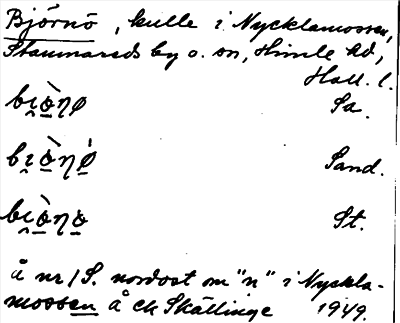 Björnö, kulle i Nycklamossen,
Stamnareds by o. sn, Himle hd,
Hall. l.
Sa.
Sand.
St.
å nr 1 S. nordost om "n" i Nyckla-
mossen å ek Skällinge 1949.